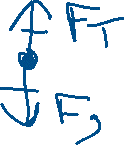 F_T
F_g